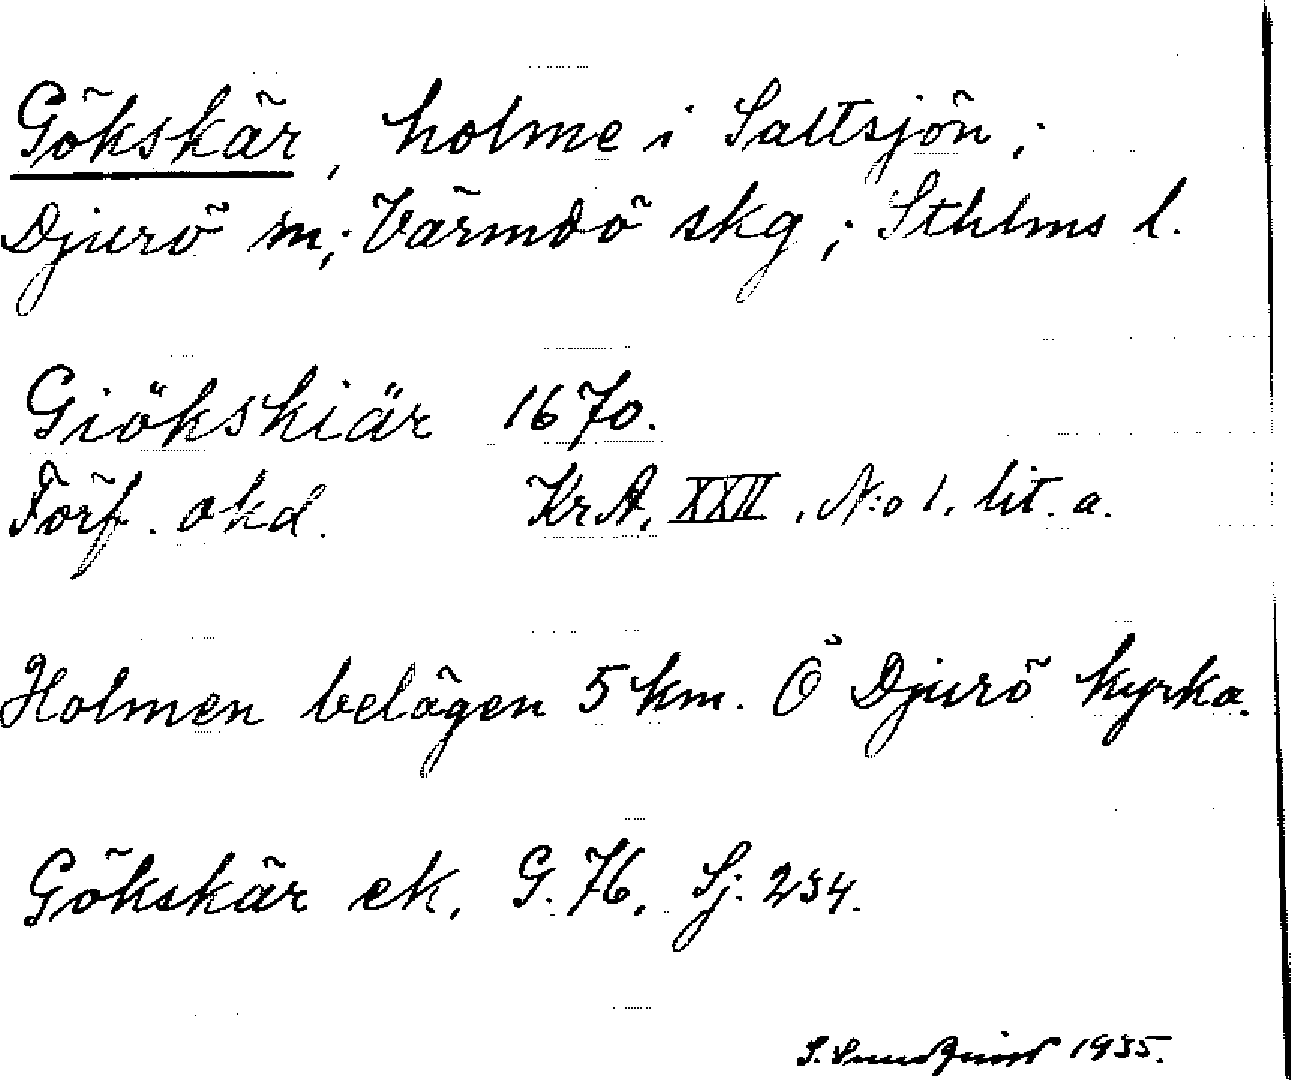 Gökskär, holme i Saltsjön;
Djurö m; Värmdö skg; Sthlms l.
Giökskiär 1670.
Förf. okd. KrA, XXII, N:o 1. lit. a.
Holmen belägen 5 km. Ö Djurö kyrka.
Gökskär ek. G. 76. Sj. 234.
S. 1935.